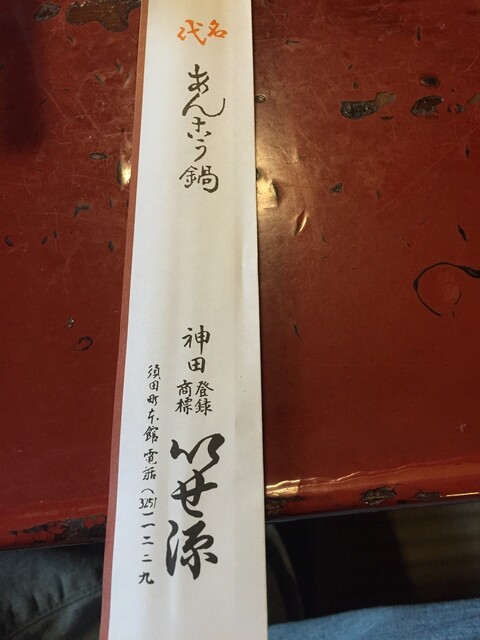 名代
あんこう鍋
神田
登録
商標
いせ源
須田町本館 電話(3251)一二二九